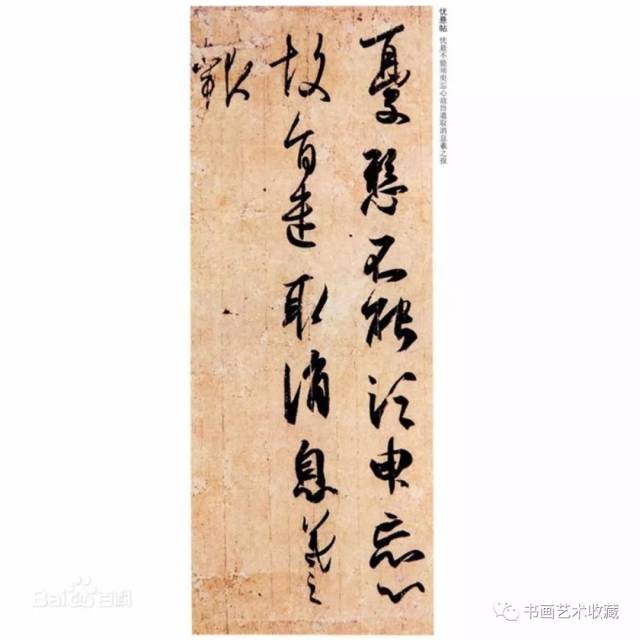 忧悬帖 忧悬不能须臾忘心故旨遣取消息羲之报
憂懸不能須臾忘心
故旨遣取消息羲之
報
Bai百科
书画艺术收藏